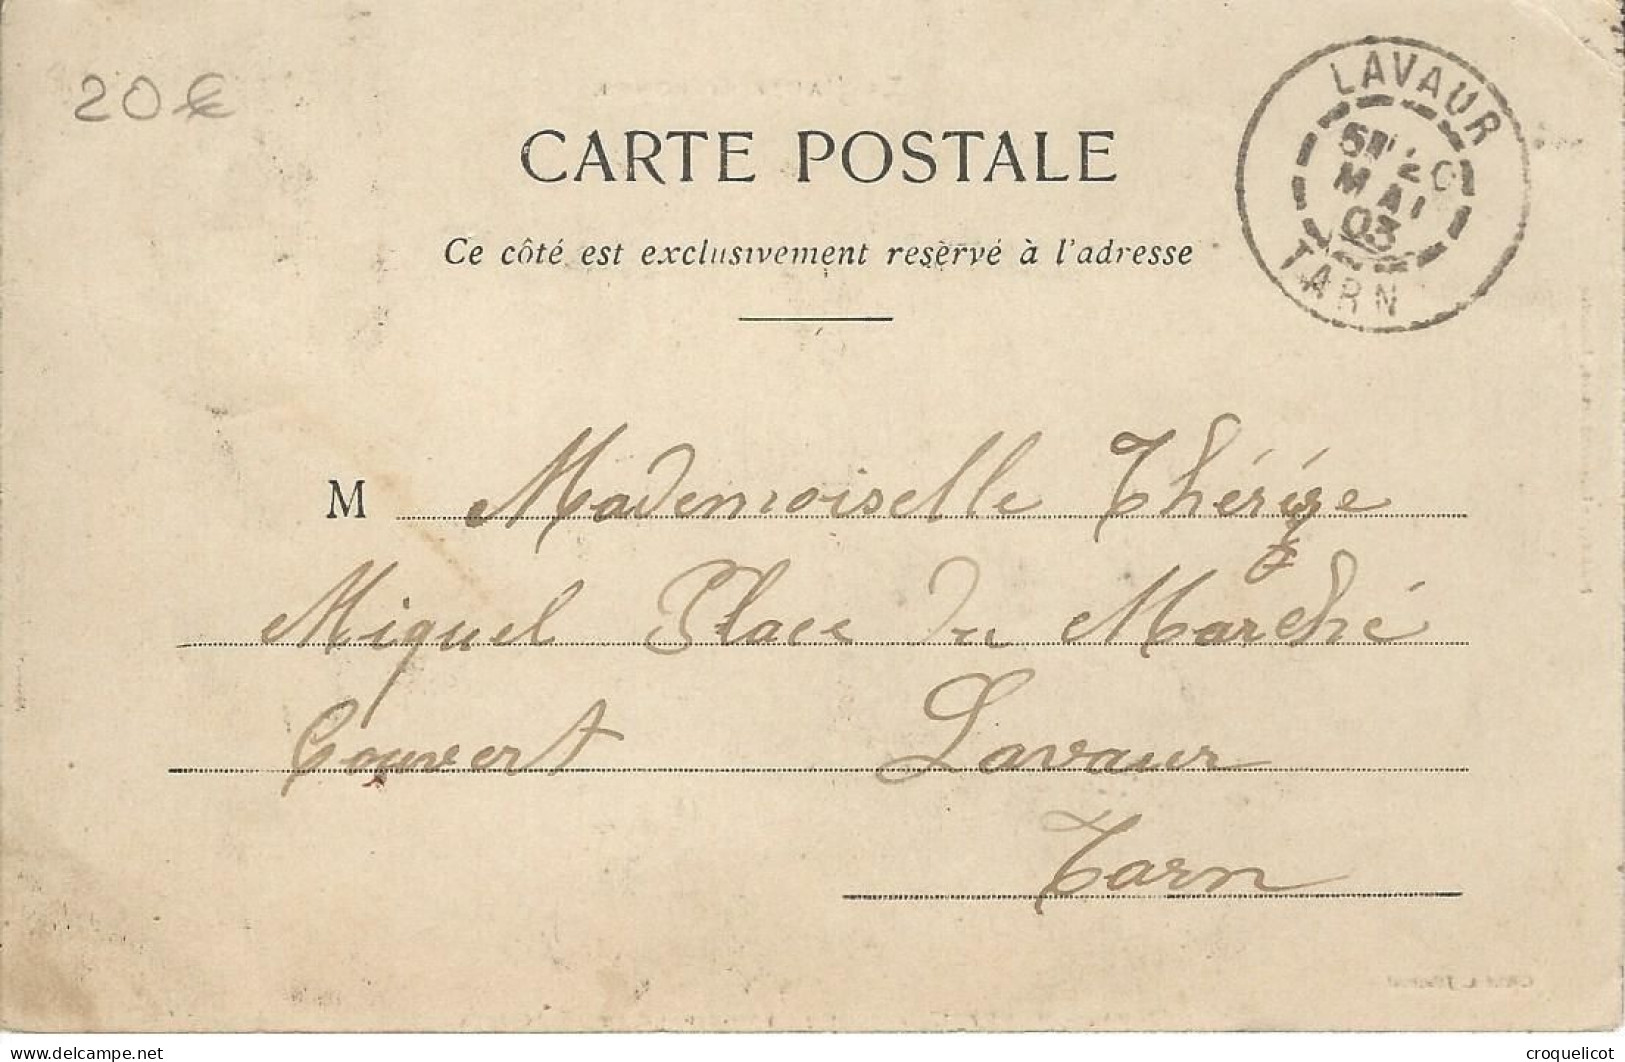 20€
CARTE POSTALE
Ce côté est exclusivement reservé à l'adresse
LAVAUR
MAI
03
TARN
M Mademoiselle Thérèze
Miquel Place du Marché
Couvert Lavaur
Tarn
www.delcampe.net
croquelicot